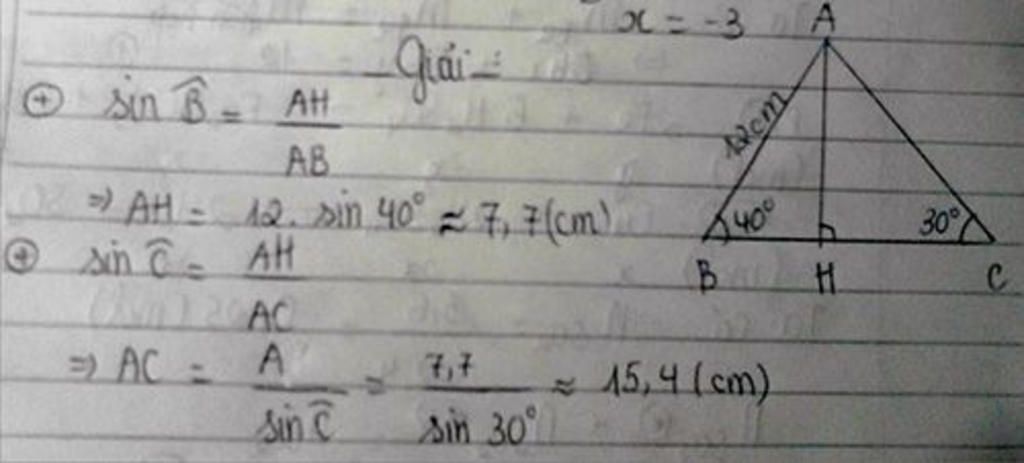 x = -3
Giải:
⊕ sin B̂ = AH / AB
⇒ AH = 12. sin 40° ≈ 7,7 (cm)
⊕ sin Ĉ = AH / AC
⇒ AC = A / sin Ĉ = 7,7 / sin 30° ≈ 15,4 (cm)
A
12cm
40° 30°
B H C